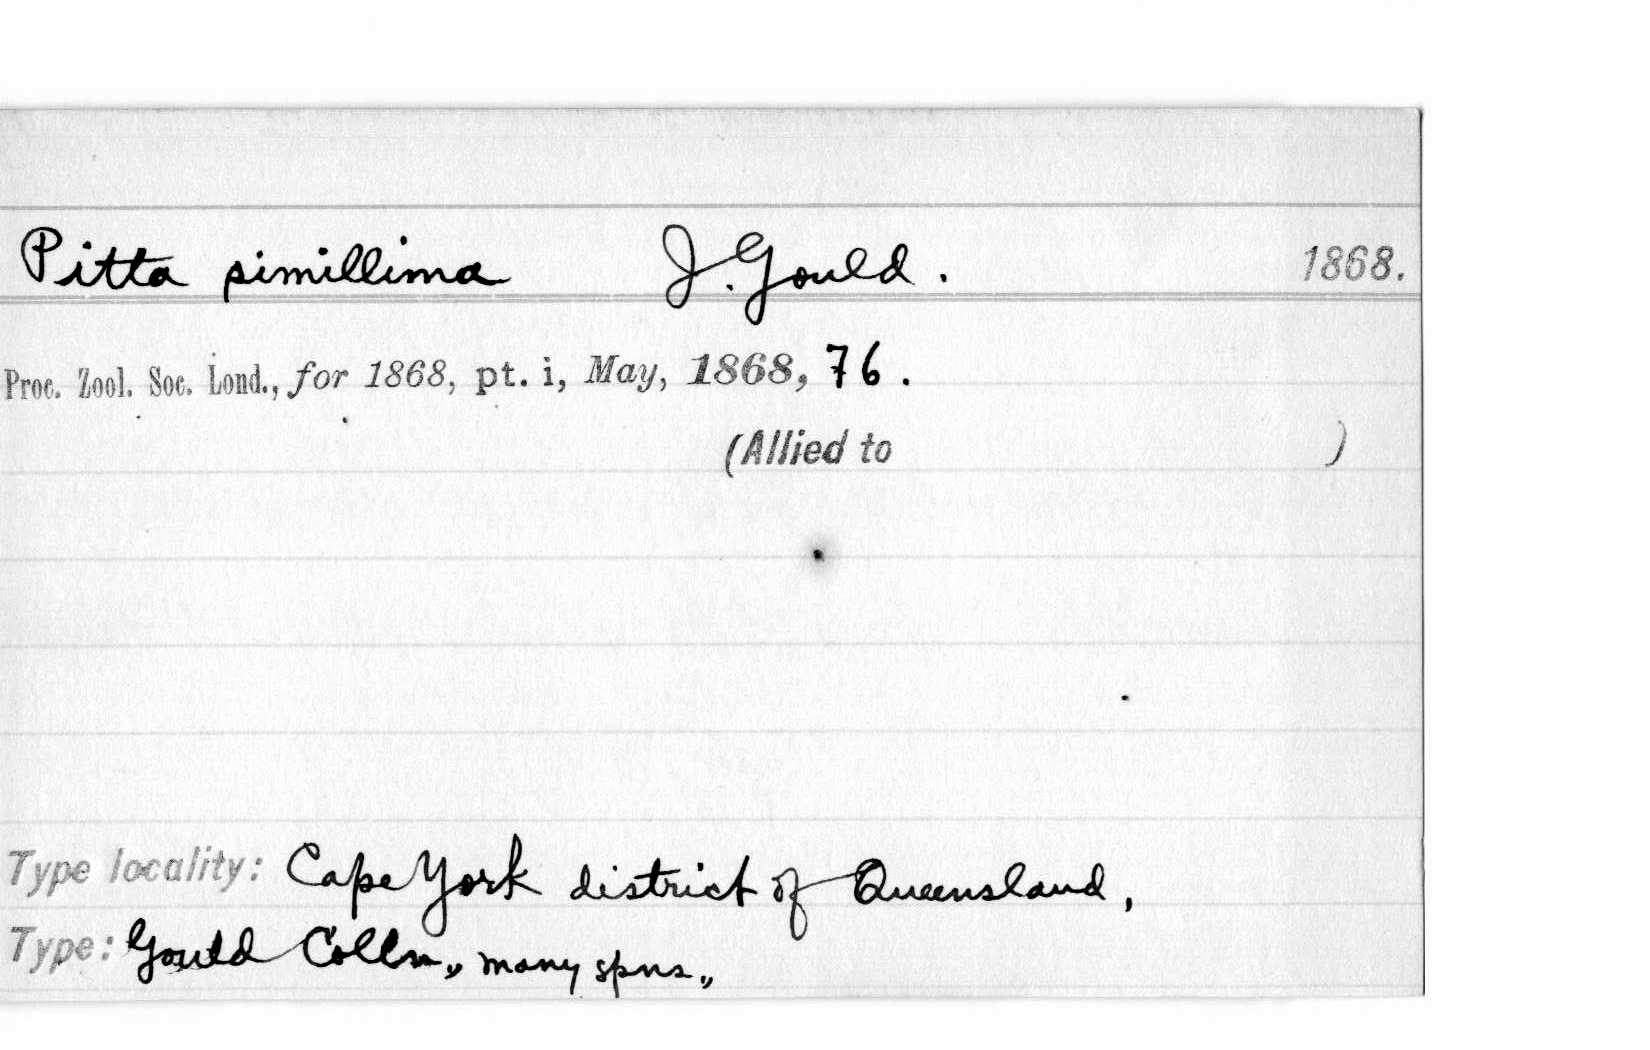 Pitta simillima J. Gould. 1868.
Proc. Zool. Soc. Lond., for 1868, pt. i, May, 1868, 76.
(Allied to )
Type locality: Cape York district of Queensland,
Type: Gould Colln,, many spns,,